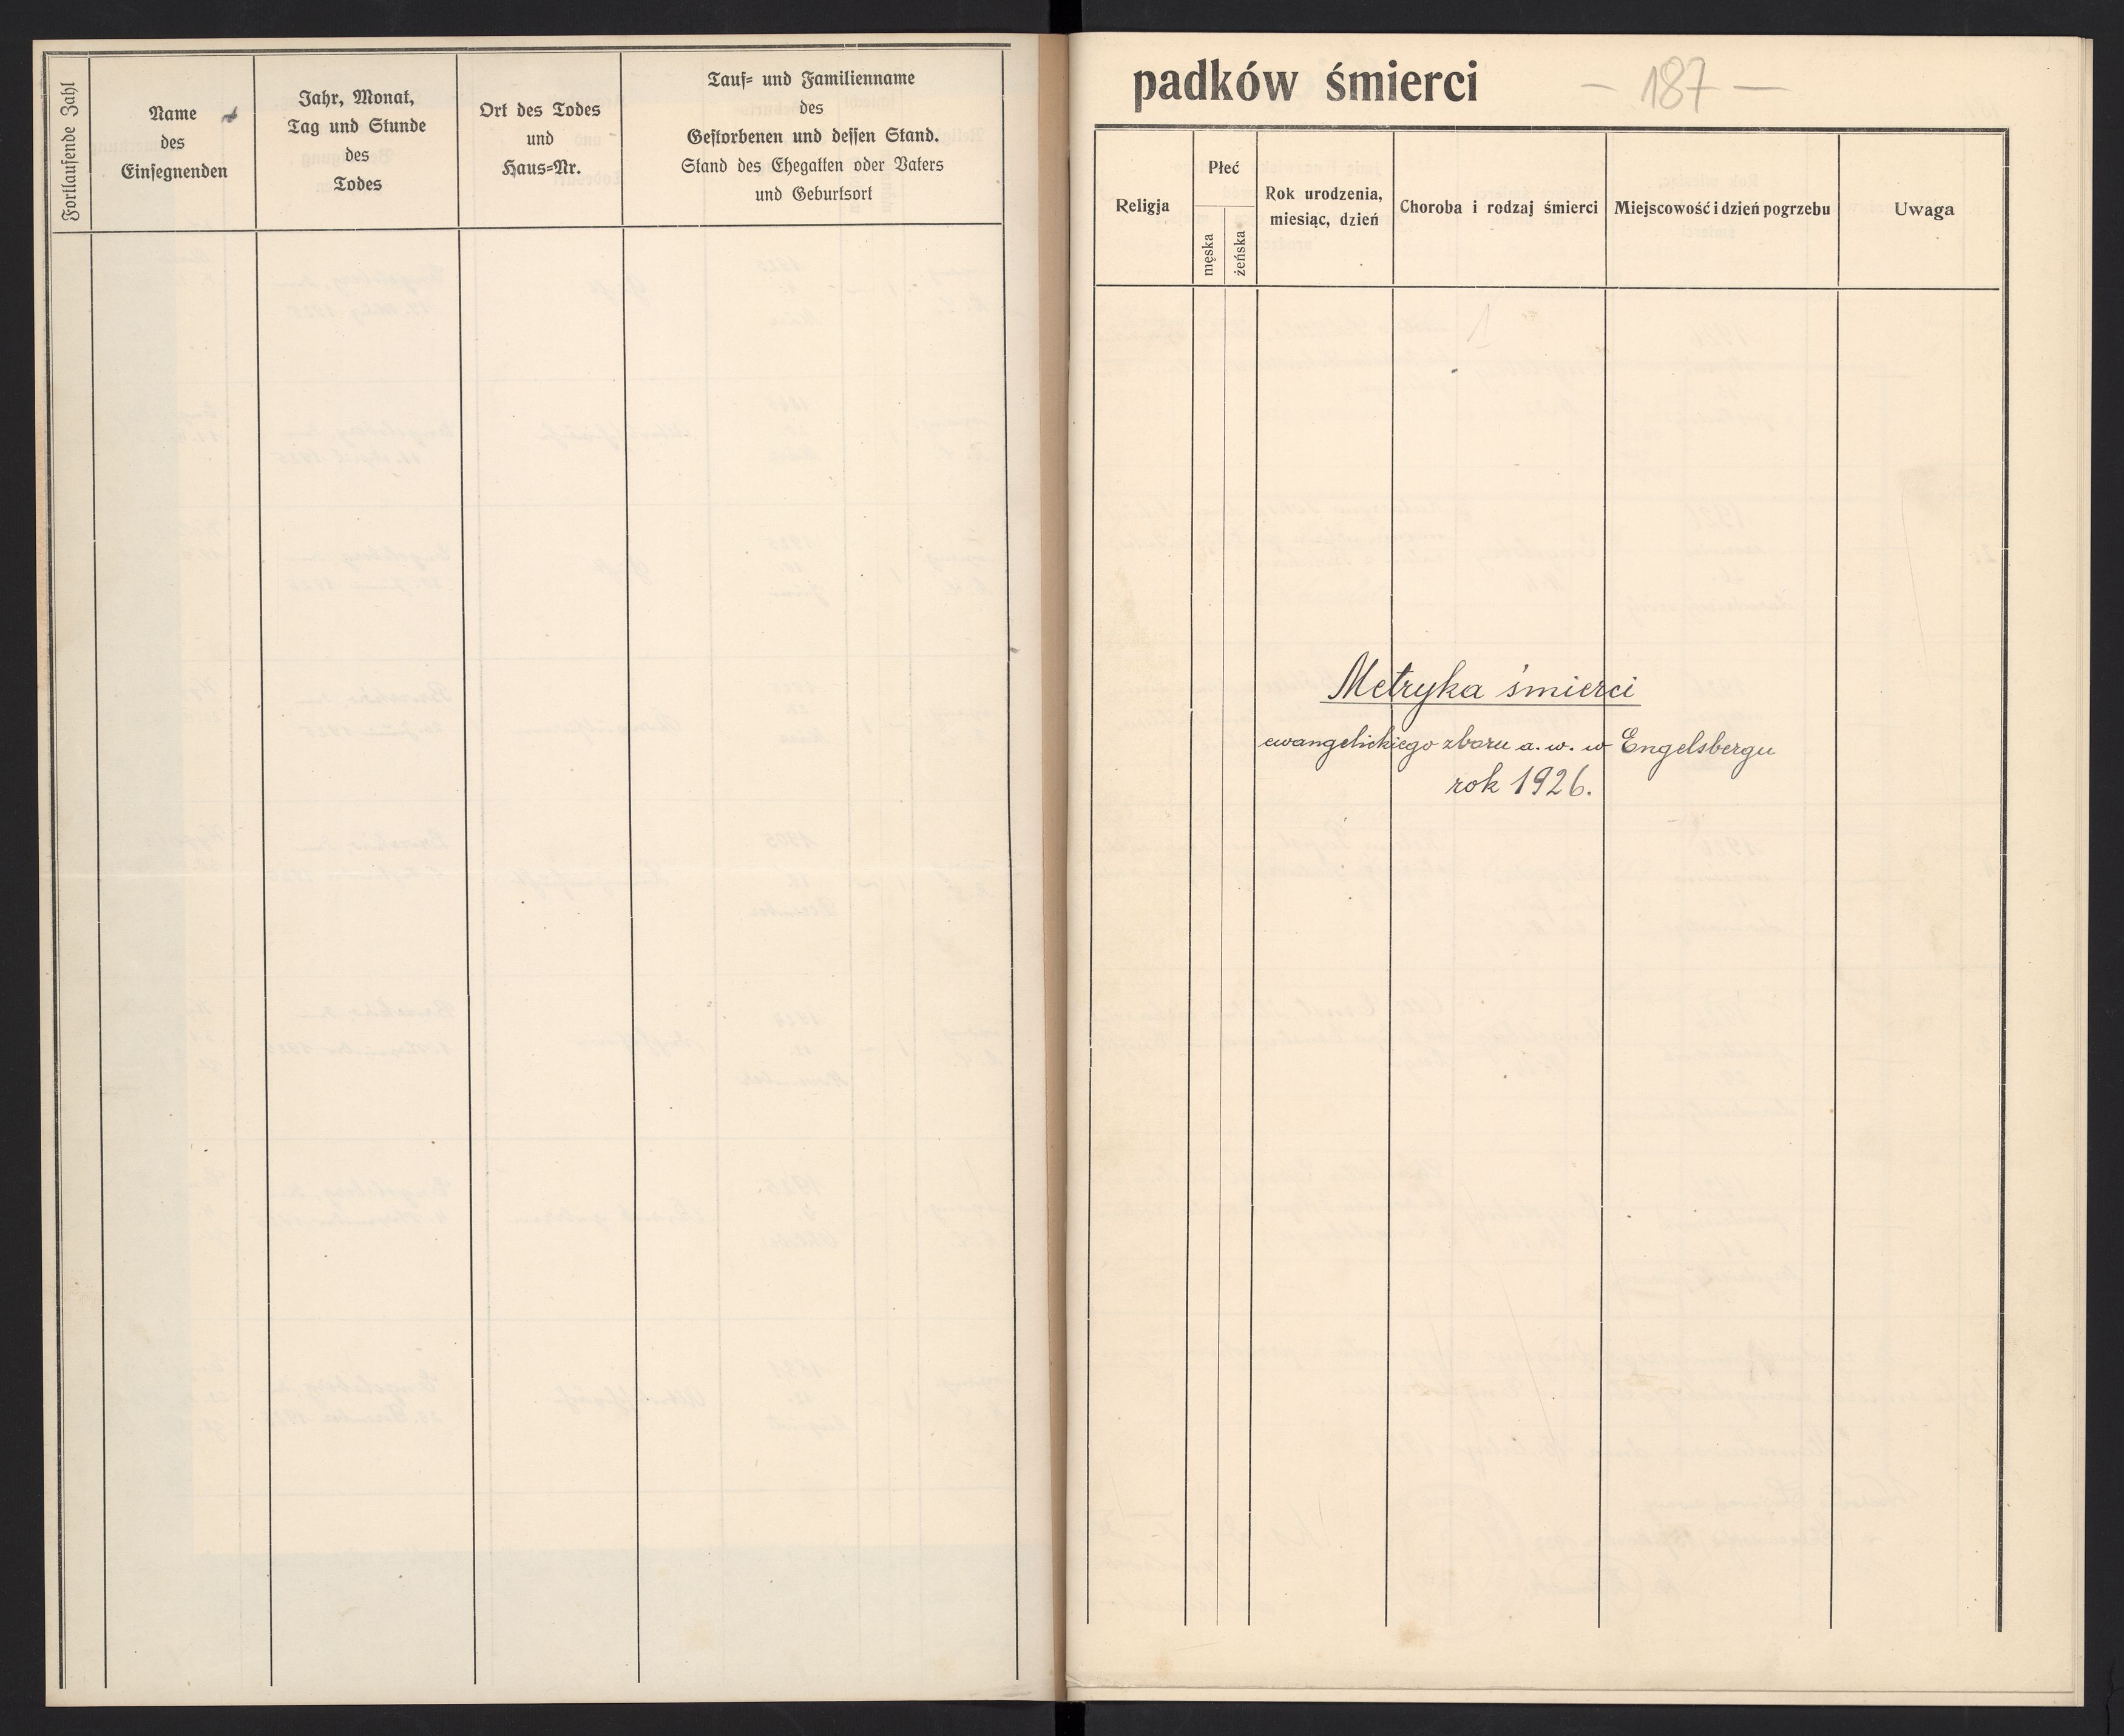 Fortlaufende Zahl
Name
des
Einsegnenden
Jahr, Monat,
Tag und Stunde
des
Todes
Ort des Todes
und
Haus-Nr.
Tauf- und Familienname
des
Gestorbenen und dessen Stand.
Stand des Ehegatten oder Vaters
und Geburtsort
padków śmierci
– 187 –
Religja
Płeć
męska
żeńska
Rok urodzenia,
miesiąc, dzień
Choroba i rodzaj śmierci
Miejscowość i dzień pogrzebu
Uwaga
Metryka śmierci
ewangelickiego zboru a. w. w Engelsbergu
rok 1926.